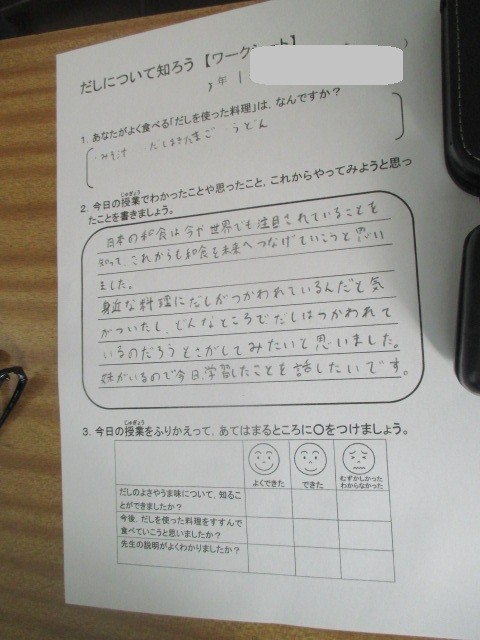 だしについて知ろう【ワークシート】
年
1. あなたがよく食べる「だしを使った料理」は、なんですか？
・みそ汁 ・だしまきたまご ・うどん
2. 今日の授業でわかったことや思ったこと、これからやってみようと思っ
たことを書きましょう。
日本の和食は今や世界でも注目されていることを
知って、これからも和食を未来へつなげていこうと思い
ました。
身近な料理にだしがつかわれているんだと気
がついたし、どんなところでだしはつかわれて
いるのだろうとさがしてみたいと思いました。
妹がいるので今日、学習したことを話したいです。
3. 今日の授業をふりかえって、あてはまるところに○をつけましょう。
よくできた できた むずかしかった わからなかった
だしのよさやうま味について、知るこ
とができましたか？
今後、だしを使った料理をすすんで
食べていこうと思いましたか？
先生の説明がよくわかりましたか？